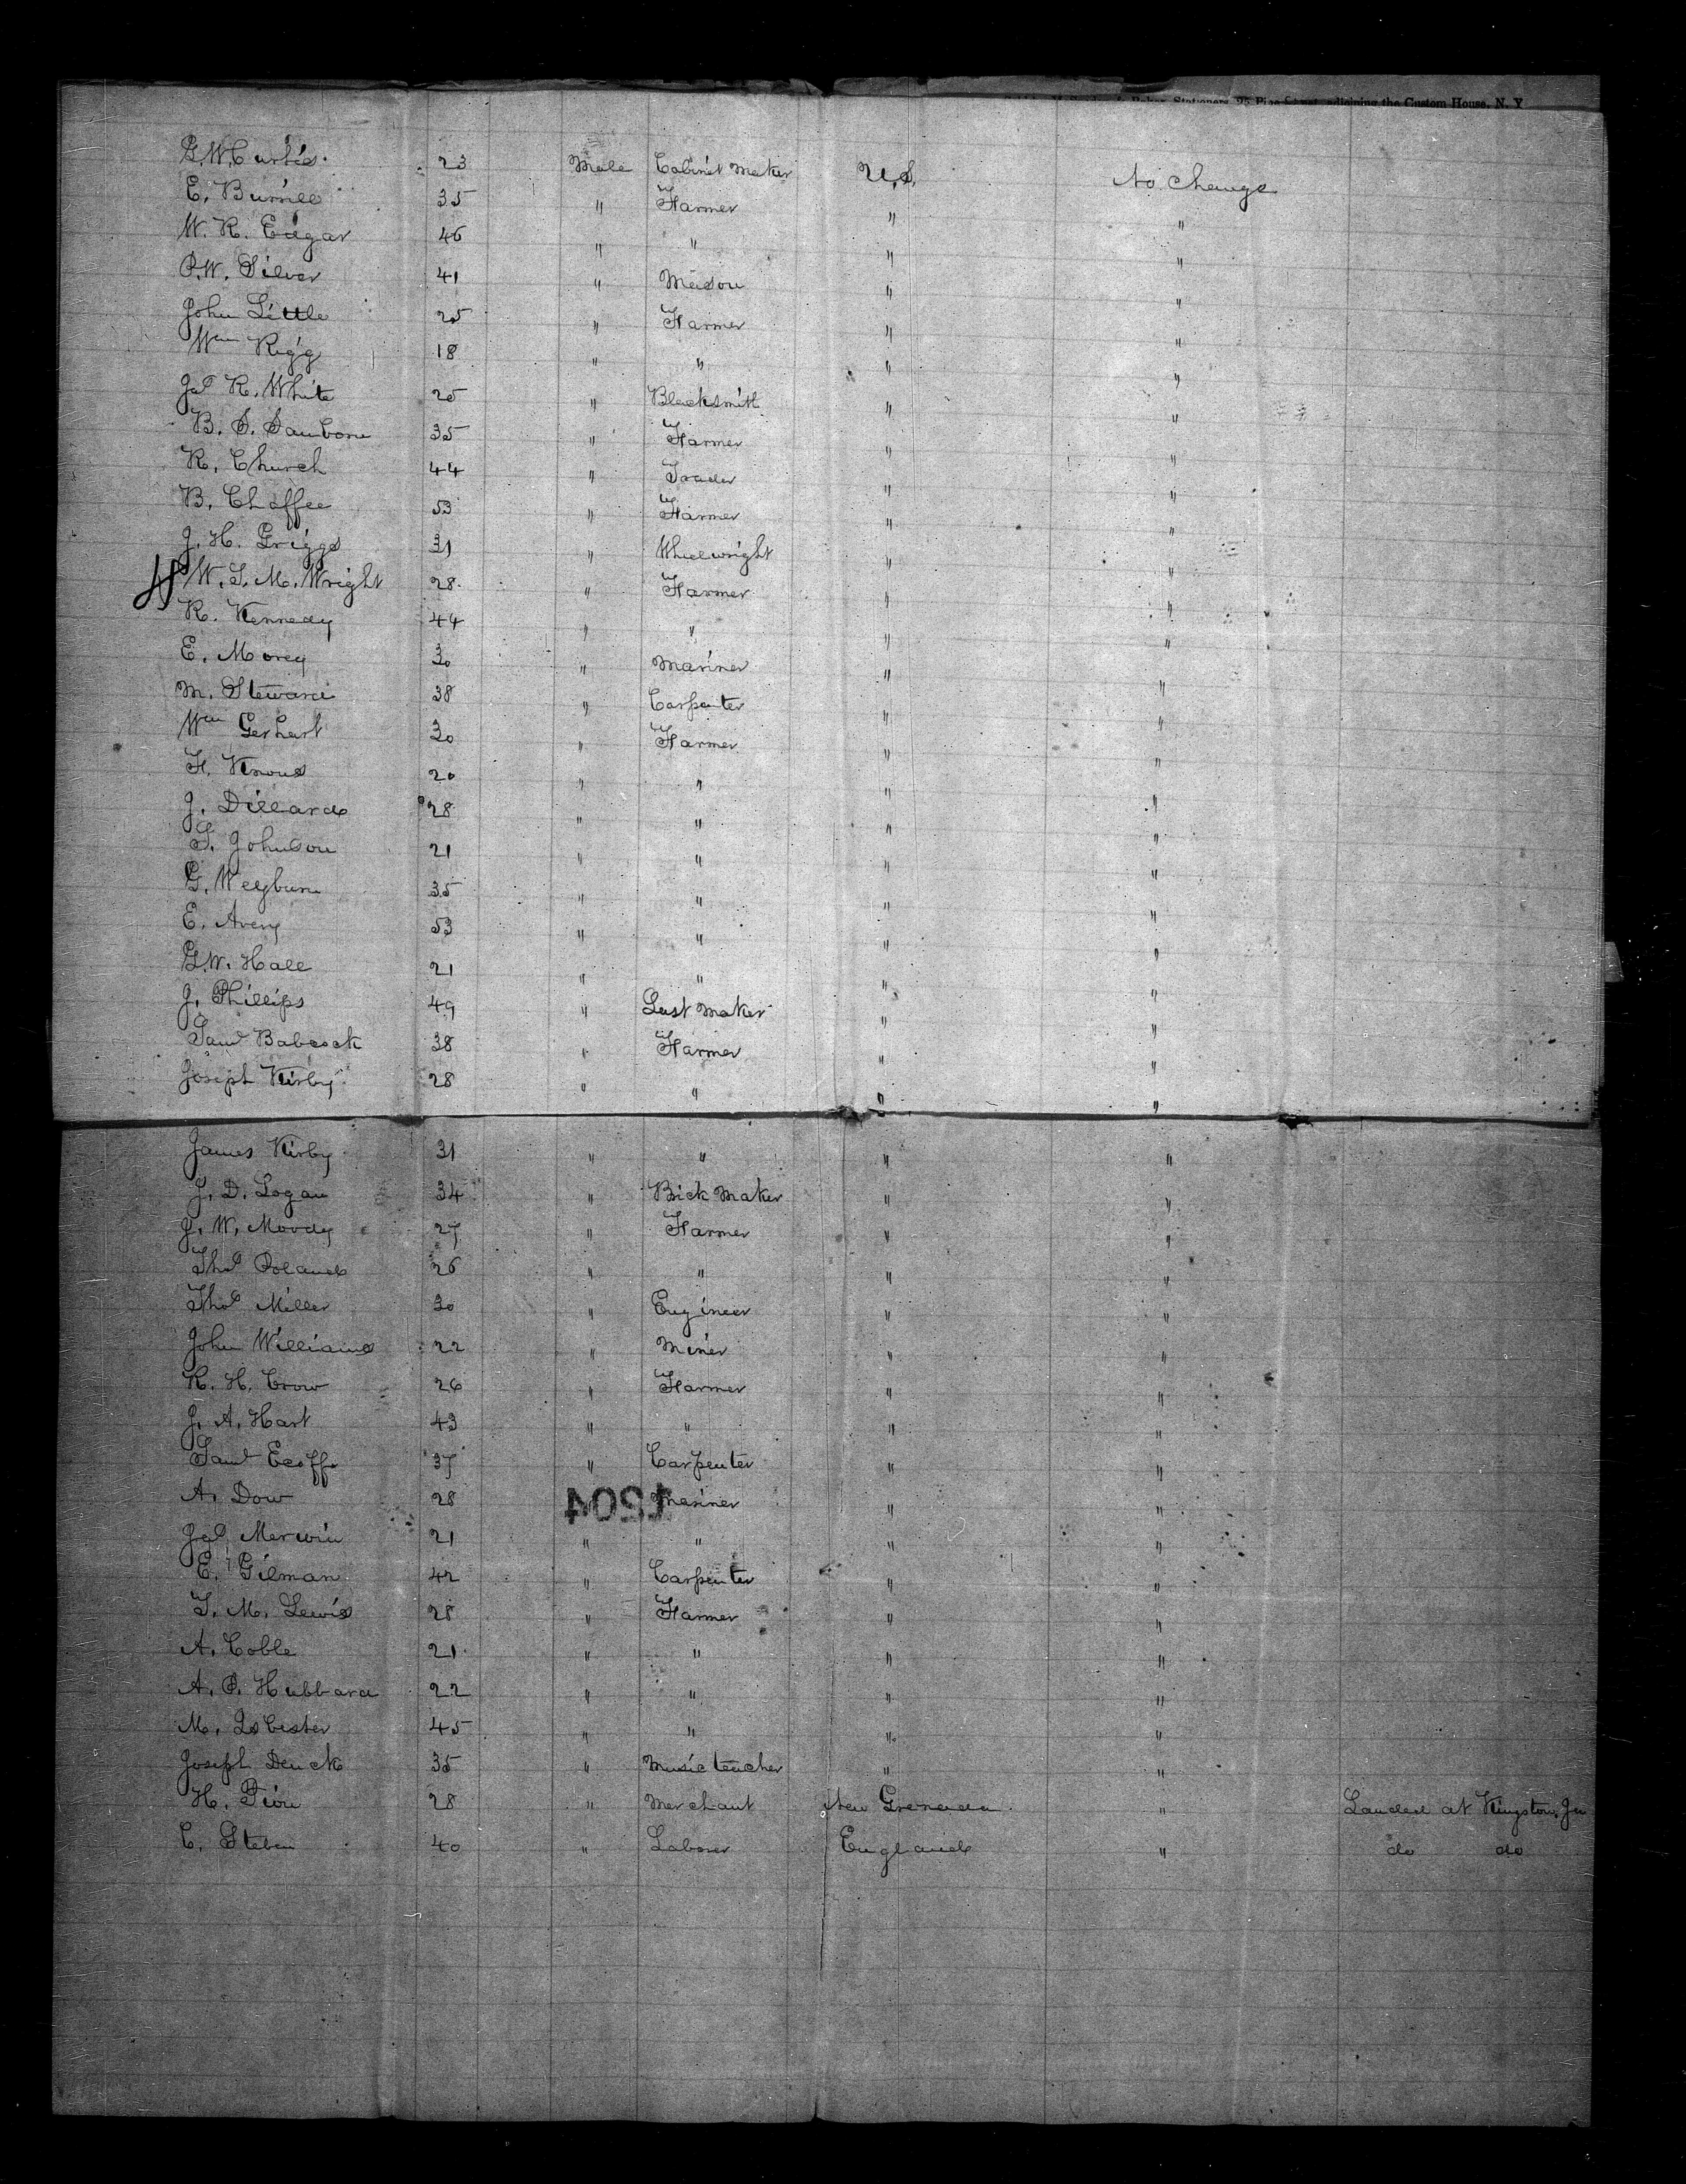 Stationers, 25 Pine Street, adjoining the Custom House, N. Y
G. W. Curtis. 23 Male Cabinet Maker U.S. No change
E. Burrill 35 " Farmer " "
W. R. Edgar 46 " " " "
P. W. Silver 41 " Mason " "
John Little 25 " Farmer " "
Wm Rigg 18 " " " "
Jas R. White 25 " Blacksmith " "
B. S. Sanborn 35 " Farmer " "
R. Church 44 " Trader " "
B. Chaffee 53 " Farmer " "
J. H. Griggs 31 " Wheelwright " "
W. S. M. Wright 28 " Farmer " "
R. Kennedy 44 " " " "
E. Morey 30 " Mariner " "
M. Steward 38 " Carpenter " "
Wm Gerhart 30 " Farmer " "
F. Knous 20 " " " "
J. Dillard 28 " " " "
S. Johnson 21 " " " "
G. Weyburn 35 " " " "
E. Avery 53 " " " "
G. W. Hall 21 " " " "
J. Phillips 49 " Last Maker " "
Saml Babcock 38 " Farmer " "
Joseph Kirby 28 " " " "
James Kirby 31 " " " "
J. D. Logan 34 " Brick Maker " "
J. W. Moody 27 " Farmer " "
Thos Poland 26 " " " "
Thos Miller 30 " Engineer " "
John Williams 22 " Miner " "
R. H. Crow 26 " Farmer " "
J. A. Hart 43 " " " "
Saml Ecoff 37 " Carpenter " "
A. Dow 28 Mariner " "
Jas Merwin 21 " " " "
E. Gilman 42 " Carpenter " "
T. M. Lewis 28 " Farmer " "
A. Coble 21 " " " "
A. P. Hubbard 22 " " " "
M. Isbester 45 " " " "
Joseph Denck 35 " Music teacher " "
H. Pion 28 " Merchant New Grenada " Landed at Kingston, Ja
C. Steben 40 " Laborer England " do do